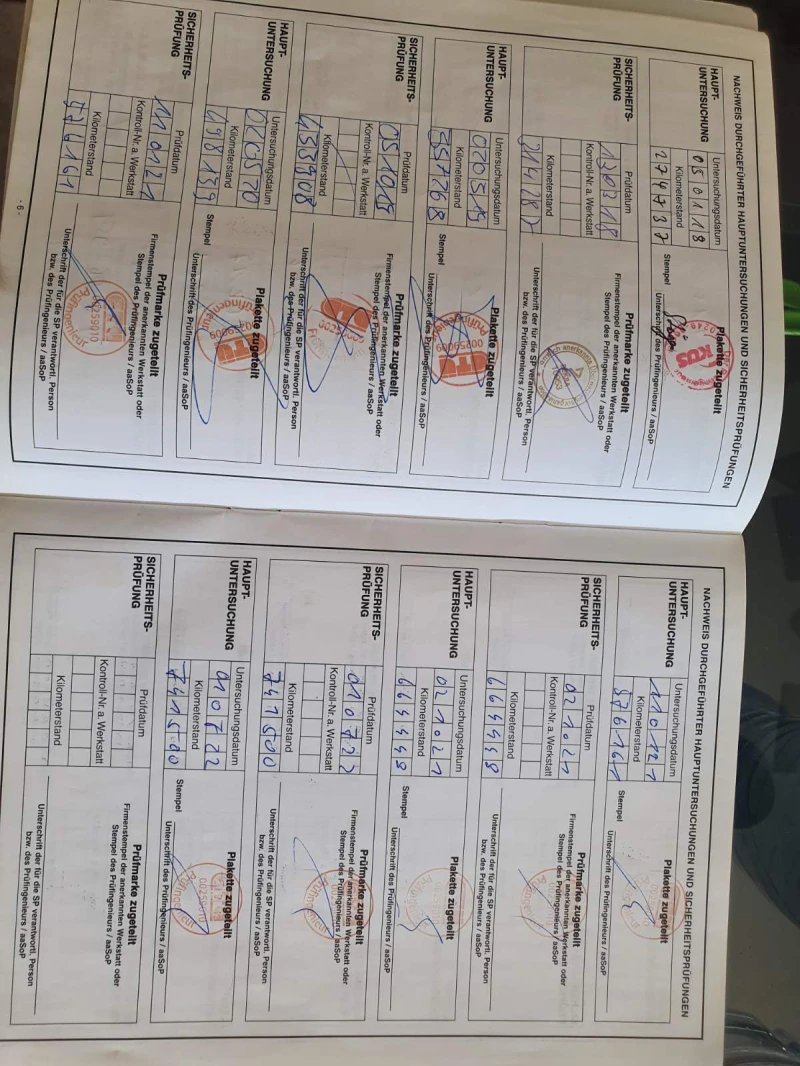 NACHWEIS DURCHGEFÜHRTER HAUPTUNTERSUCHUNGEN UND SICHERHEITSPRÜFUNGEN
HAUPT-
UNTERSUCHUNG
Untersuchungsdatum
050118
Kilometerstand
274737
Stempel
Plakette zugeteilt
KÜS
Unterschrift des Prüfingenieurs / aaSoP
SICHERHEITS-
PRÜFUNG
Prüfdatum
130318
Kontroll-Nr. a. Werkstatt
Kilometerstand
314787
Prüfmarke zugeteilt
Firmenstempel der anerkannten Werkstatt oder
Stempel des Prüfingenieurs / aaSoP
Unterschrift der für die SP verantwortl. Person
bzw. des Prüfingenieurs / aaSoP
HAUPT-
UNTERSUCHUNG
Untersuchungsdatum
020519
Kilometerstand
Stempel
Plakette zugeteilt
Unterschrift des Prüfingenieurs / aaSoP
SICHERHEITS-
PRÜFUNG
Prüfdatum
051019
Kontroll-Nr. a. Werkstatt
Kilometerstand
433908
Prüfmarke zugeteilt
Firmenstempel der anerkannten Werkstatt oder
Stempel des Prüfingenieurs / aaSoP
Unterschrift der für die SP verantwortl. Person
bzw. des Prüfingenieurs / aaSoP
HAUPT-
UNTERSUCHUNG
Untersuchungsdatum
Kilometerstand
498139
Stempel
Plakette zugeteilt
Unterschrift des Prüfingenieurs / aaSoP
SICHERHEITS-
PRÜFUNG
Prüfdatum
110121
Kontroll-Nr. a. Werkstatt
Kilometerstand
576161
Prüfmarke zugeteilt
Firmenstempel der anerkannten Werkstatt oder
Stempel des Prüfingenieurs / aaSoP
Unterschrift der für die SP verantwortl. Person
bzw. des Prüfingenieurs / aaSoP
- 6 -
NACHWEIS DURCHGEFÜHRTER HAUPTUNTERSUCHUNGEN UND SICHERHEITSPRÜFUNGEN
HAUPT-
UNTERSUCHUNG
Untersuchungsdatum
110121
Kilometerstand
576161
Stempel
Plakette zugeteilt
Unterschrift des Prüfingenieurs / aaSoP
SICHERHEITS-
PRÜFUNG
Prüfdatum
021021
Kontroll-Nr. a. Werkstatt
Kilometerstand
664448
Prüfmarke zugeteilt
Firmenstempel der anerkannten Werkstatt oder
Stempel des Prüfingenieurs / aaSoP
Unterschrift der für die SP verantwortl. Person
bzw. des Prüfingenieurs / aaSoP
HAUPT-
UNTERSUCHUNG
Untersuchungsdatum
021021
Kilometerstand
664448
Stempel
Plakette zugeteilt
Unterschrift des Prüfingenieurs / aaSoP
SICHERHEITS-
PRÜFUNG
Prüfdatum
010722
Kontroll-Nr. a. Werkstatt
Kilometerstand
741500
Prüfmarke zugeteilt
Firmenstempel der anerkannten Werkstatt oder
Stempel des Prüfingenieurs / aaSoP
Unterschrift der für die SP verantwortl. Person
bzw. des Prüfingenieurs / aaSoP
HAUPT-
UNTERSUCHUNG
Untersuchungsdatum
010722
Kilometerstand
741500
Stempel
Plakette zugeteilt
Unterschrift des Prüfingenieurs / aaSoP
SICHERHEITS-
PRÜFUNG
Prüfdatum
Kontroll-Nr. a. Werkstatt
Kilometerstand
Prüfmarke zugeteilt
Firmenstempel der anerkannten Werkstatt oder
Stempel des Prüfingenieurs / aaSoP
Unterschrift der für die SP verantwortl. Person
bzw. des Prüfingenieurs / aaSoP